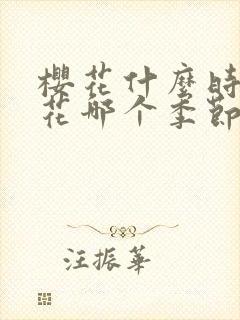 櫻花什麼時
花哪个季節
汪振華